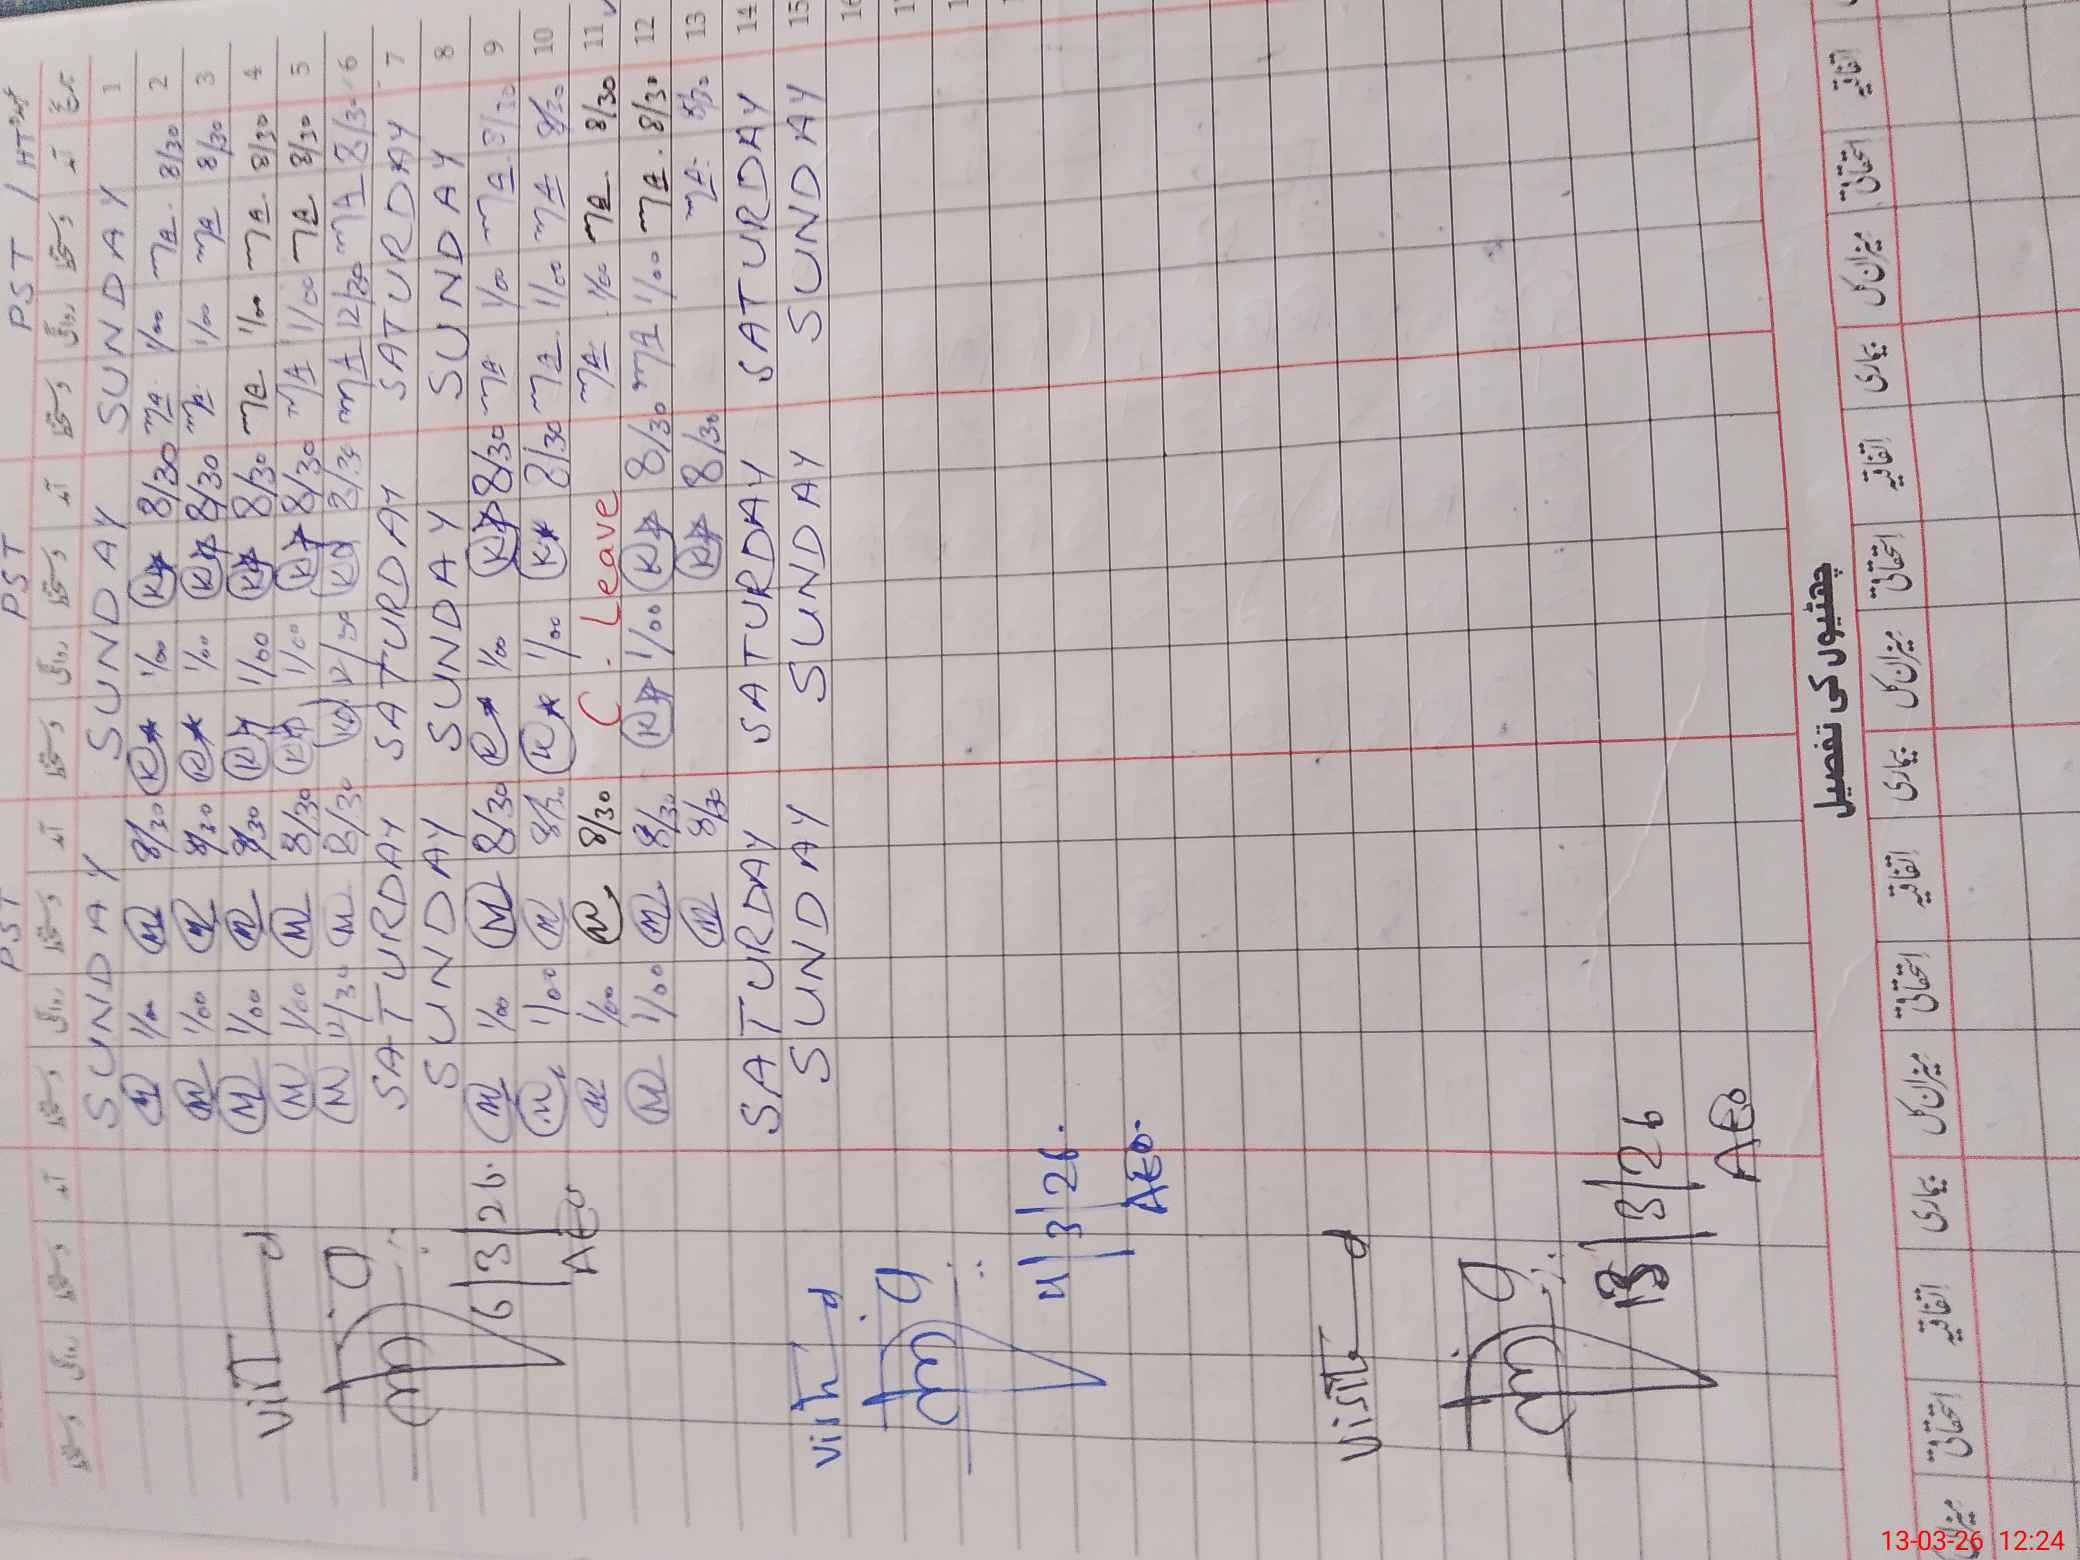 PST / HT PST PST
تاریخ آمد دستخط روانگی دستخط آمد دستخط روانگی دستخط آمد دستخط روانگی دستخط آمد دستخط روانگی دستخط
1 SUNDAY SUNDAY SUNDAY
2 8/30 MA 1/00 MA 8/30 K 1/00 K 8/30 M 1/00 M
3 8/30 MA 1/00 MA 8/30 K 1/00 K 8/30 M 1/00 M
4 8/30 MA 1/00 MA 8/30 K 1/00 K 8/30 M 1/00 M
5 8/30 MA 1/00 MA 8/30 K 1/00 K 8/30 M 1/00 M
6 8/30 MA 12/30 MA 8/30 K 12/30 K 8/30 M 12/30 M
7 SATURDAY SATURDAY SATURDAY
8 SUNDAY SUNDAY SUNDAY
9 8/30 MA 1/00 MA 8/30 K 1/00 K 8/30 M 1/00 M
10 8/30 MA 1/00 MA 8/30 K 1/00 K 8/30 M 1/00 M
11 8/30 MA 1/00 MA C. Leave 8/30 M 1/00 M
12 8/30 MA 1/00 MA 8/30 K 1/00 K 8/30 M 1/00 M
13 8/30 MA 8/30 K 8/30 M
14 SATURDAY SATURDAY SATURDAY
15 SUNDAY SUNDAY SUNDAY
16
Visited
6/3/26
AEO
Visited
11/3/26.
AEO.
Visited
13/3/26
AEO
چھٹیوں کی تفصیل
اتفاقیہ استحقاقی میزان کل بیماری اتفاقیہ استحقاقی میزان کل بیماری اتفاقیہ استحقاقی میزان کل بیماری اتفاقیہ استحقاقی
13-03-26 12:24